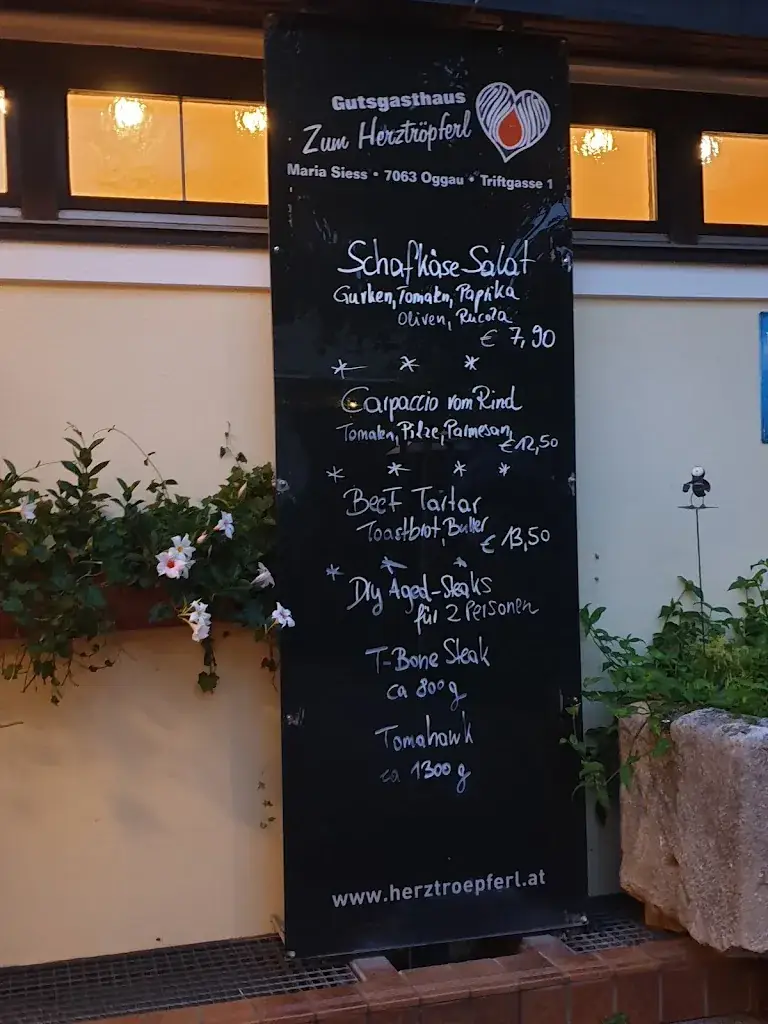 Gutsgasthaus
Zum Herztröpferl
Maria Siess • 7063 Oggau • Triftgasse 1
Schafkäse Salat
Gurken, Tomaten, Paprika
Oliven, Rucola
€ 7,90
* * *
Carpaccio vom Rind
Tomaten, Pilze, Parmesan,
€ 12,50
* * * *
Beef Tartar
Toastbrot, Butter
€ 13,50
* * *
Dry Aged-Steaks
für 2 Personen
T-Bone Steak
ca 800 g
Tomahawk
ca 1300 g
www.herztroepferl.at